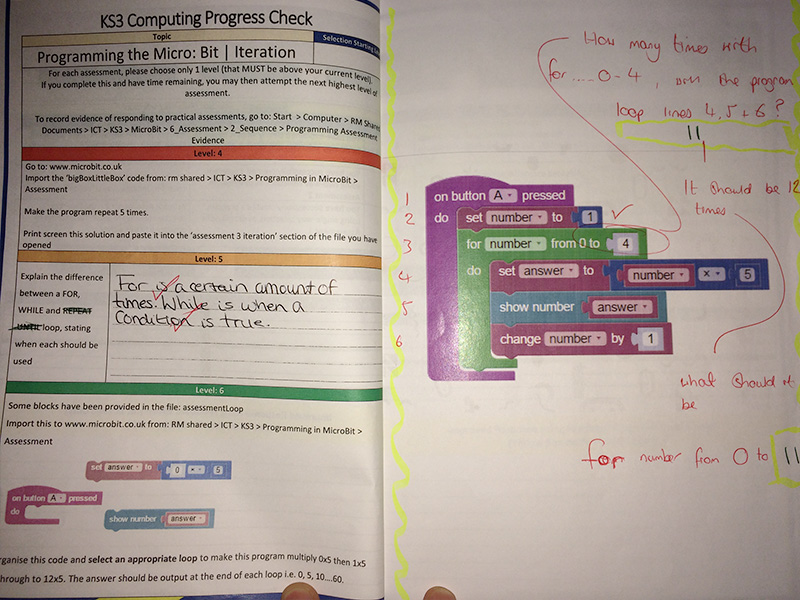 KS3 Computing Progress Check
Topic
Selection Starting
Programming the Micro: Bit | Iteration
For each assessment, please choose only 1 level (that MUST be above your current level).
If you complete this and have time remaining, you may then attempt the next highest level of
assessment.
To record evidence of responding to practical assessments, go to: Start > Computer > RM Shared
Documents > ICT > KS3 > MicroBit > 6_Assessment > 2_Sequence > Programming Assessment
Evidence
Level: 4
Go to: www.microbit.co.uk
Import the 'bigBoxLittleBox' code from: rm shared > ICT > KS3 > Programming in MicroBit >
Assessment
Make the program repeat 5 times.
Print screen this solution and paste it into the 'assessment 3 iteration' section of the file you have
opened
Level: 5
Explain the difference
between a FOR,
WHILE and REPEAT
UNTIL loop, stating
when each should be
used
For is a certain amount of
times. While is when a
Condition is true.
Level: 6
Some blocks have been provided in the file: assessmentLoop
Import this to www.microbit.co.uk from: RM shared > ICT > KS3 > Programming in MicroBit >
Assessment
set answer to 0 × 5
on button A pressed
do
show number answer
rganise this code and select an appropriate loop to make this program multiply 0x5 then 1x5
through to 12x5. The answer should be output at the end of each loop i.e. 0, 5, 10....60.
How many times with
for.....0-4, will the program
loop lines 4,5+6?
11
It should be 12
times
1 on button A pressed
2 do set number to 1
3 for number from 0 to 4
4 do set answer to number × 5
5 show number answer
6 change number by 1
what should it
be
for number from 0 to 11